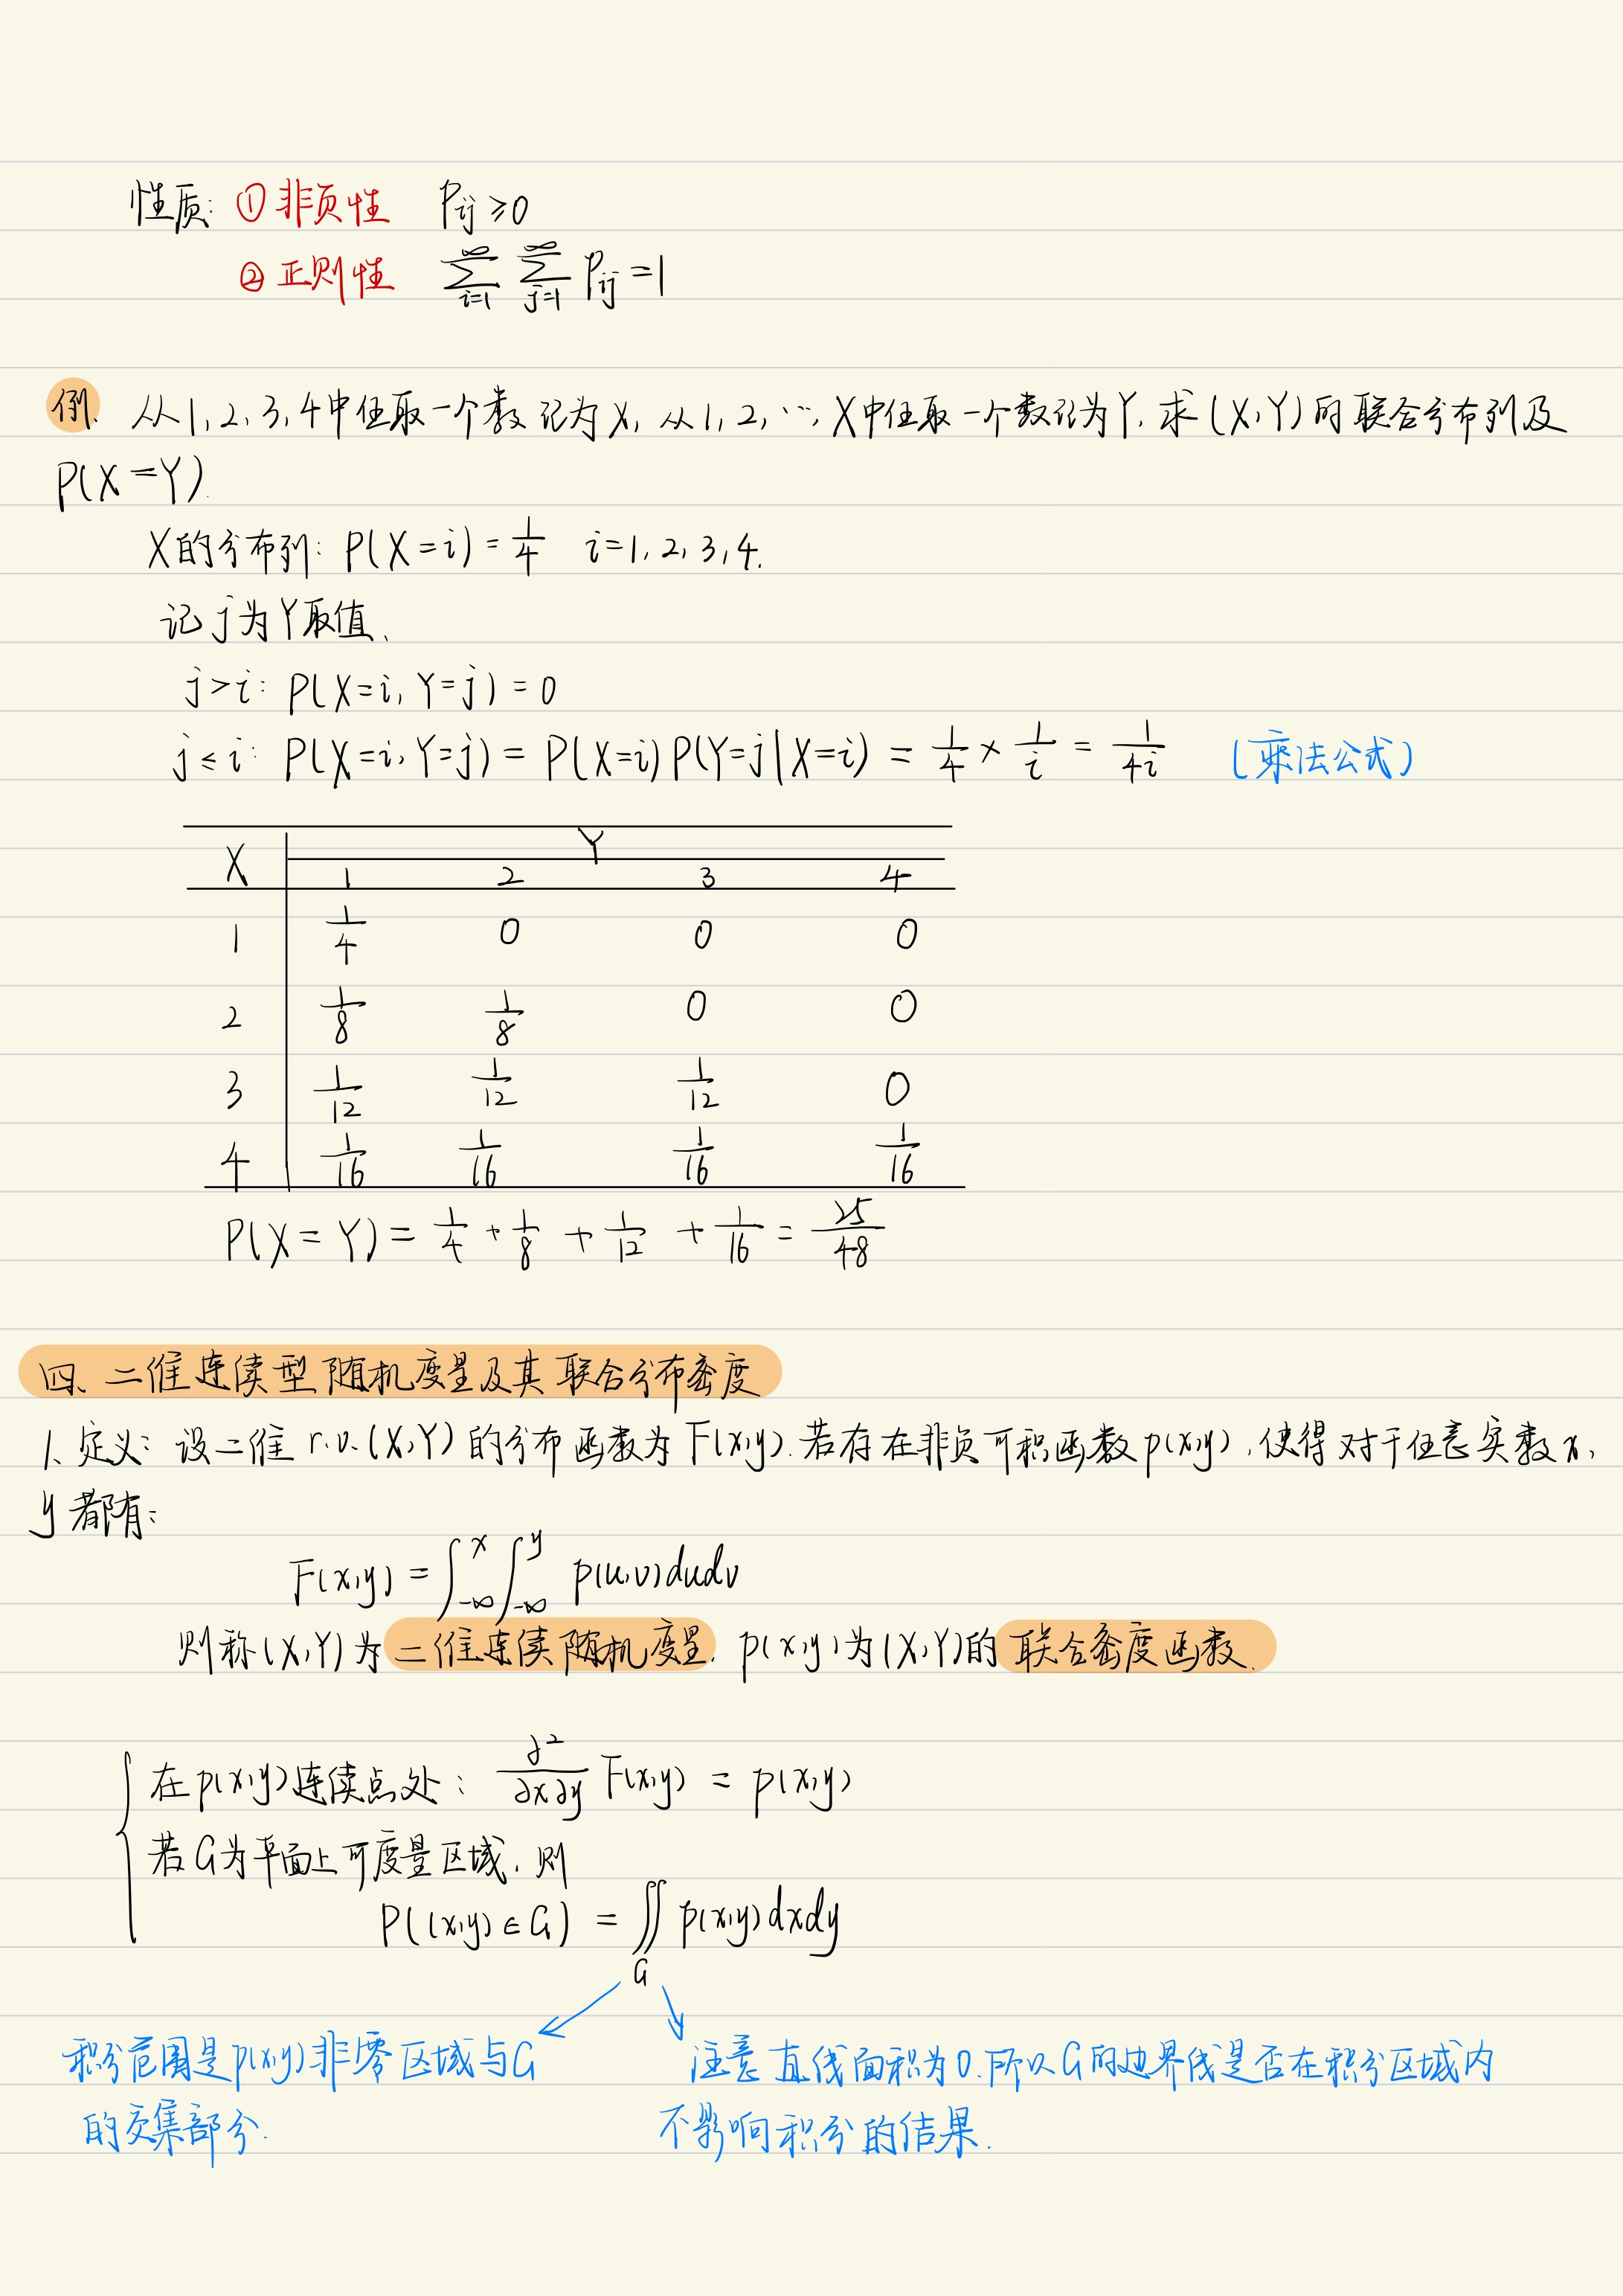 性质: ①非负性 Pij≥0
②正则性 ∑_{i=1}^{∞} ∑_{j=1}^{∞} Pij=1
例. 从1,2,3,4中任取一个数记为X, 从1,2,…,X中任取一个数记为Y, 求(X,Y)的联合分布列及
P(X=Y).
X的分布列: P(X=i)=1/4 i=1,2,3,4.
记j为Y取值.
j>i: P(X=i,Y=j)=0
j≤i: P(X=i,Y=j)=P(X=i)P(Y=j|X=i)=1/4×1/i=1/4i (乘法公式)
X Y
1 2 3 4
1 1/4 0 0 0
2 1/8 1/8 0 0
3 1/12 1/12 1/12 0
4 1/16 1/16 1/16 1/16
P(X=Y)=1/4+1/8+1/12+1/16=25/48
四、二维连续型随机变量及其联合分布密度
1、定义: 设二维r.v.(X,Y)的分布函数为F(x,y).若存在非负可积函数p(x,y),使得对于任意实数x,
y都有:
F(x,y)=∫_{-∞}^{x}∫_{-∞}^{y} p(u,v)dudv
则称(X,Y)为二维连续随机变量. p(x,y)为(X,Y)的联合密度函数.
在p(x,y)连续点处: ∂²/∂x∂y F(x,y)=p(x,y)
若G为平面上可度量区域,则
P((x,y)∈G)=∬_G p(x,y)dxdy
积分范围是p(x,y)非零区域与G
的交集部分.
注意直线面积为0.所以G的边界线是否在积分区域内
不影响积分的结果.